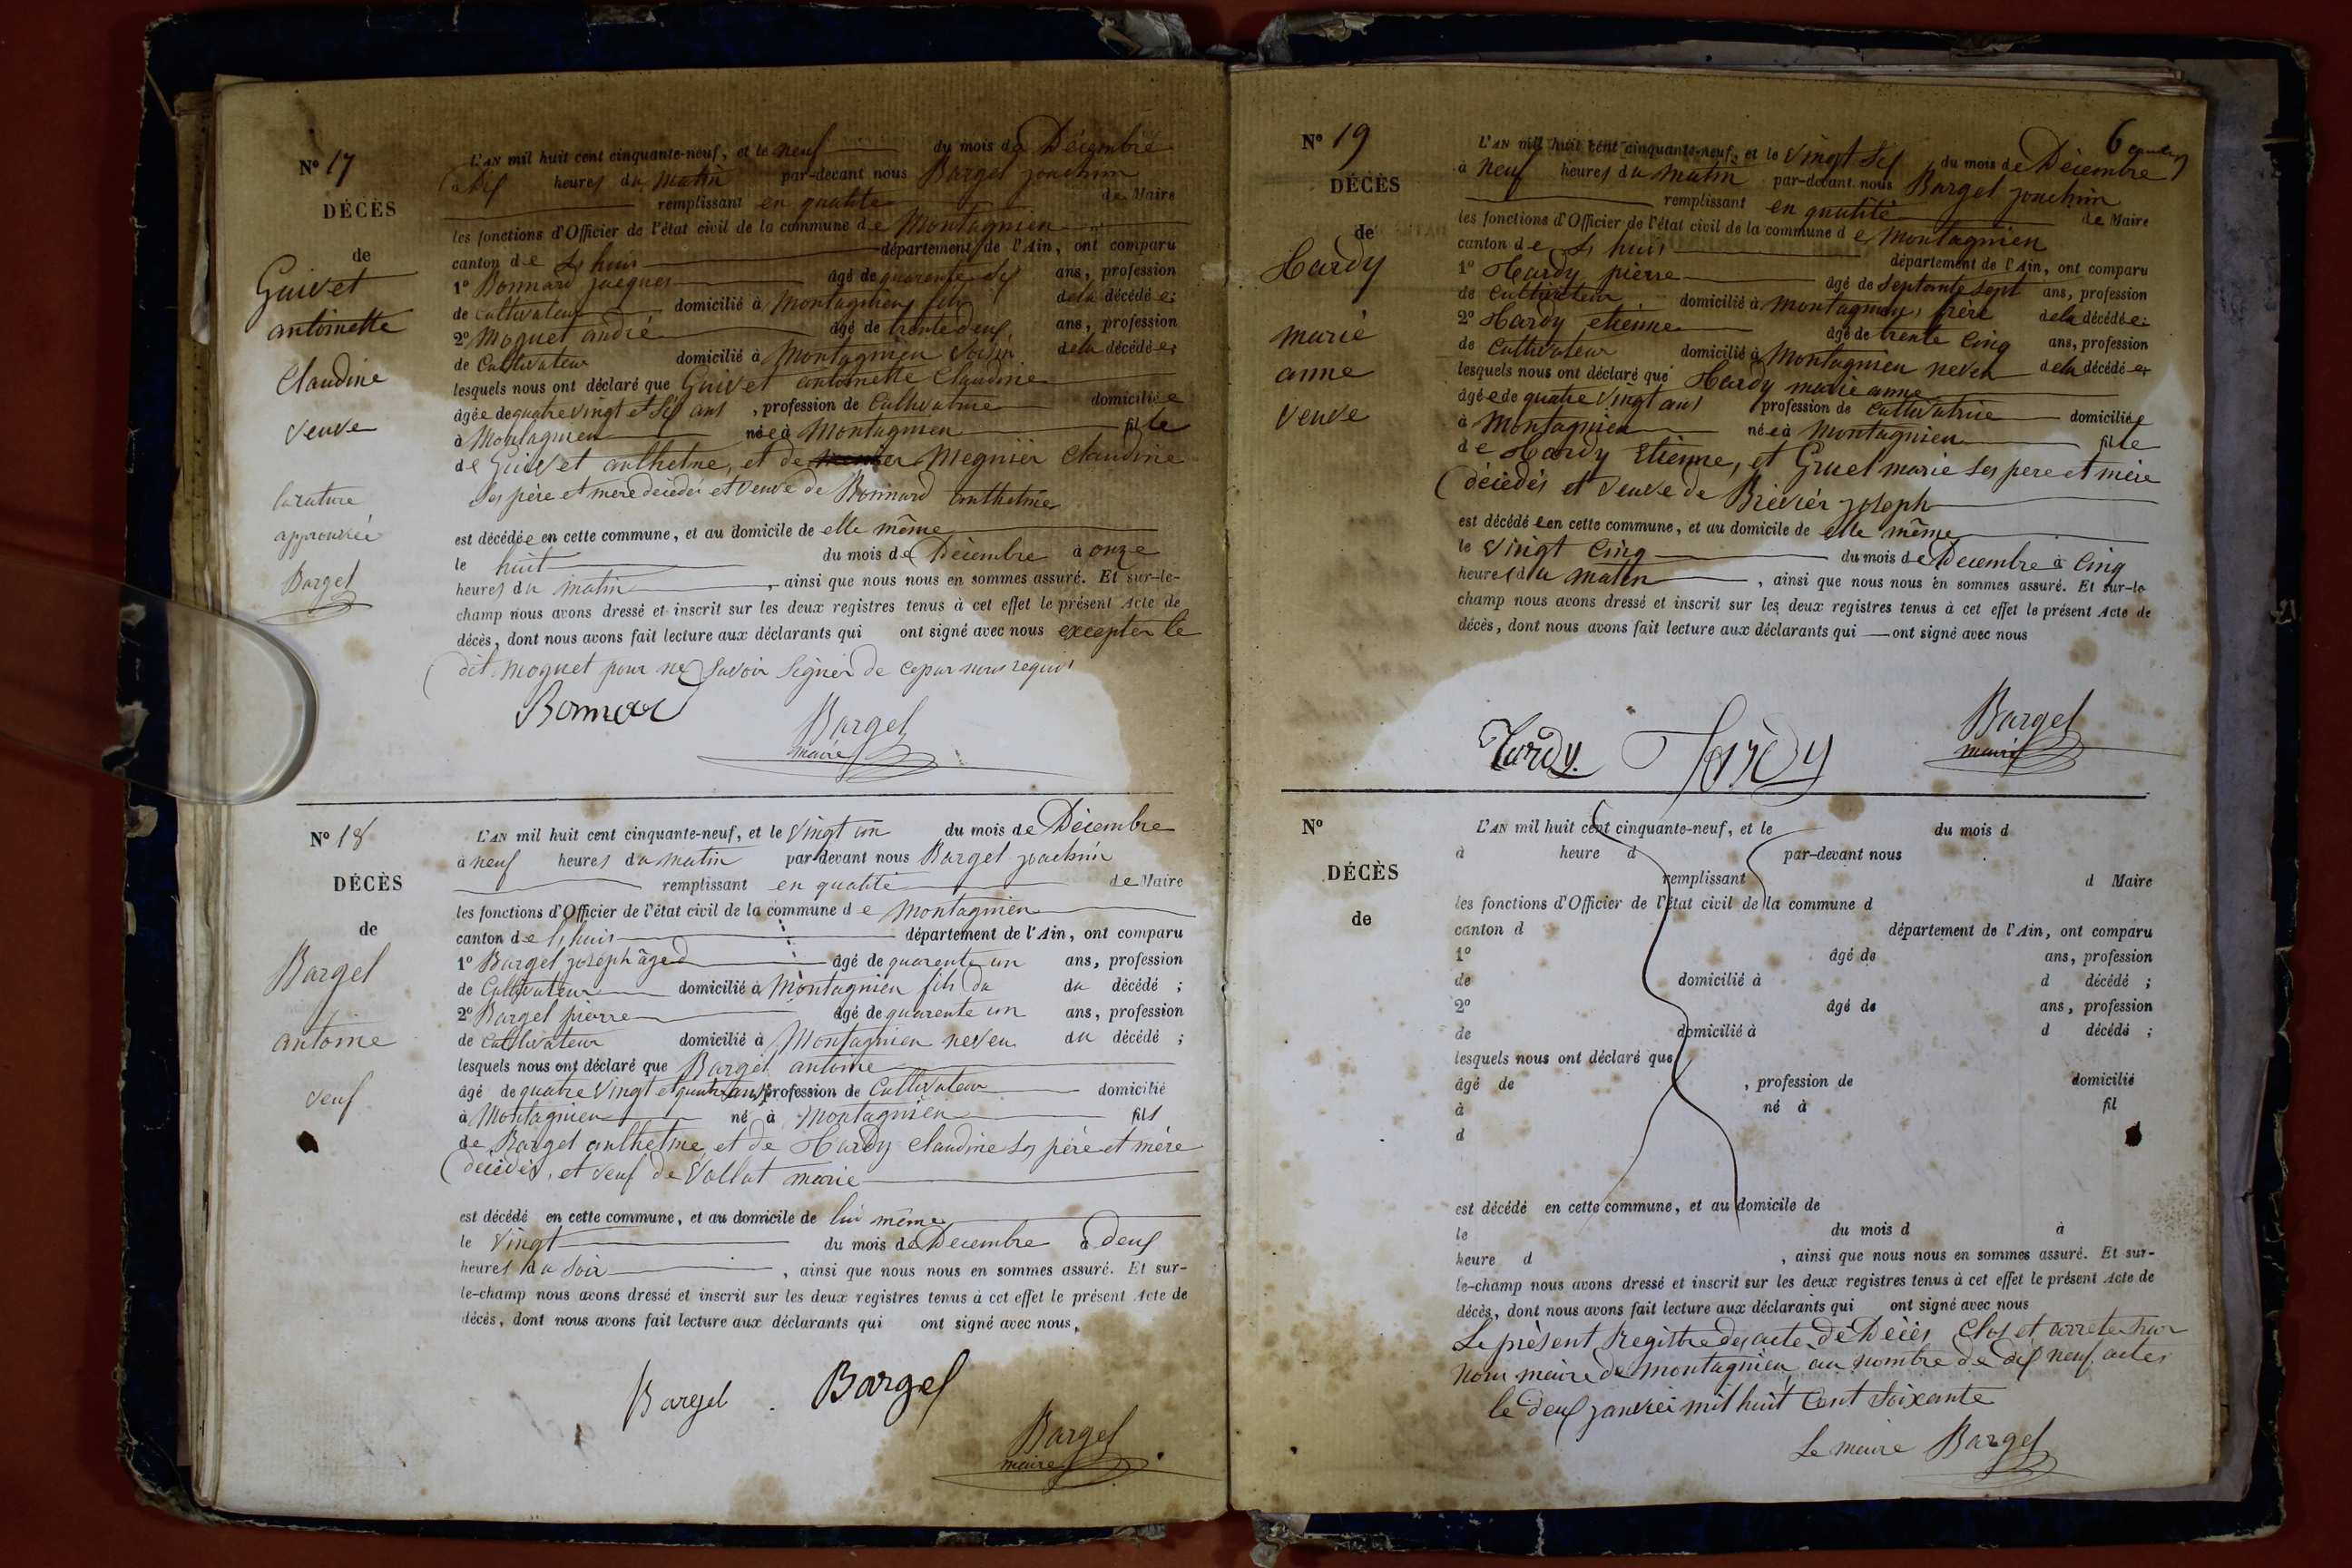 N° 17
DÉCÈS
de
Guivet
antoinette
Claudine
veuve
la rature
approuvée
Bargel
L'AN mil huit cent cinquante-neuf, et le neuf du mois de Décembre
à Dix heures du matin par-devant nous Bargel joachim
remplissant en qualité de Maire
les fonctions d'Officier de l'état civil de la commune de Montagnieu
canton de L huis département de l'Ain, ont comparu
1° Bonnard jacques âgé de quarente six ans, profession
de Cultivateur domicilié à Montagnieu fils de la décédée;
2° Moquet andré âgé de trente deux ans, profession
de Cultivateur domicilié à Montagnieu voisin de la décédée;
lesquels nous ont déclaré que Guivet antoinette Claudine
âgée de quatre vingt et six ans, profession de Cultivatrice domiciliée
à Montagnieu née à Montagnieu fille
de Guivet anthelme, et de Megnier Claudine
ses père et mere décédés et veuve de Bonnard anthelme
est décédée en cette commune, et au domicile de elle même
le huit du mois de Décembre à onze
heures du matin, ainsi que nous nous en sommes assuré. Et sur-le-
champ nous avons dressé et inscrit sur les deux registres tenus à cet effet le présent Acte de
décès, dont nous avons fait lecture aux déclarants qui ont signé avec nous excepter le
dit moquet pour ne savoir signer de ce par nous requis
Bonnar
Bargel
maire
N° 18
DÉCÈS
de
Bargel
antoine
veuf
L'AN mil huit cent cinquante-neuf, et le vingt un du mois de Décembre
à neuf heures du matin par-devant nous Bargel joachim
remplissant en qualité de Maire
les fonctions d'Officier de l'état civil de la commune de Montagnieu
canton de L huis département de l'Ain, ont comparu
1° Bargel joseph âged âgé de quarente un ans, profession
de Cultivateur domicilié à Montagnieu fils du du décédé;
2° Bargel pierre âgé de quarente un ans, profession
de Cultivateur domicilié à Montagnieu neveu du décédé;
lesquels nous ont déclaré que Bargel antoine
âgé de quatre vingt et quatre ans, profession de Cultivateur domicilié
à Montagnieu né à Montagnieu fils
de Bargel anthelme, et de Hardy Claudine ses père et mère
décédés, et veuf de Vallat marie
est décédé en cette commune, et au domicile de lui même
le vingt du mois de Décembre à deux
heures du soir, ainsi que nous nous en sommes assuré. Et sur-
le-champ nous avons dressé et inscrit sur les deux registres tenus à cet effet le présent Acte de
décès, dont nous avons fait lecture aux déclarants qui ont signé avec nous,
Bargel Bargel
Bargel
maire
6
N° 19
DÉCÈS
de
Hardy
marie
anne
veuve
L'AN mil huit cent cinquante-neuf, et le vingt six du mois de Décembre
à neuf heures du matin par-devant nous Bargel joachim
remplissant en qualité de Maire
les fonctions d'Officier de l'état civil de la commune de Montagnieu
canton de L huis département de l'Ain, ont comparu
1° Hardy pierre âgé de septante sept ans, profession
de Cultivateur domicilié à Montagnieu frère de la décédée;
2° Hardy etienne âgé de trente cinq ans, profession
de Cultivateur domicilié à Montagnieu neveu de la décédée;
lesquels nous ont déclaré que Hardy marie anne
âgée de quatre vingt ans profession de Cultivatrice domiciliée
à Montagnieu née à Montagnieu fille
de Hardy Etienne, et Gruel marie ses pere et mère
décédés et veuve de Brévier joseph
est décédée en cette commune, et au domicile de elle même
le vingt cinq du mois de Décembre à cinq
heures du matin, ainsi que nous nous en sommes assuré. Et sur-le
champ nous avons dressé et inscrit sur les deux registres tenus à cet effet le présent Acte de
décès, dont nous avons fait lecture aux déclarants qui ont signé avec nous
Hardy. Hardy
Bargel
maire
N°
DÉCÈS
de
L'AN mil huit cent cinquante-neuf, et le du mois d
à heure d par-devant nous
remplissant d Maire
les fonctions d'Officier de l'état civil de la commune d
canton d département de l'Ain, ont comparu
1° âgé de ans, profession
de domicilié à d décédé ;
2° âgé de ans, profession
de domicilié à d décédé ;
lesquels nous ont déclaré que
âgé de , profession de domicilié
à né à fil
d
est décédé en cette commune, et au domicile de
le du mois d à
heure d , ainsi que nous nous en sommes assuré. Et sur-
le-champ nous avons dressé et inscrit sur les deux registres tenus à cet effet le présent Acte de
décès, dont nous avons fait lecture aux déclarants qui ont signé avec nous
Le présent Registre des acte de Décès Clos et arrete par
nous maire de montagnieu au nombre de dix neuf actes
le deux janvier mil huit cent soixante
Le maire Bargel